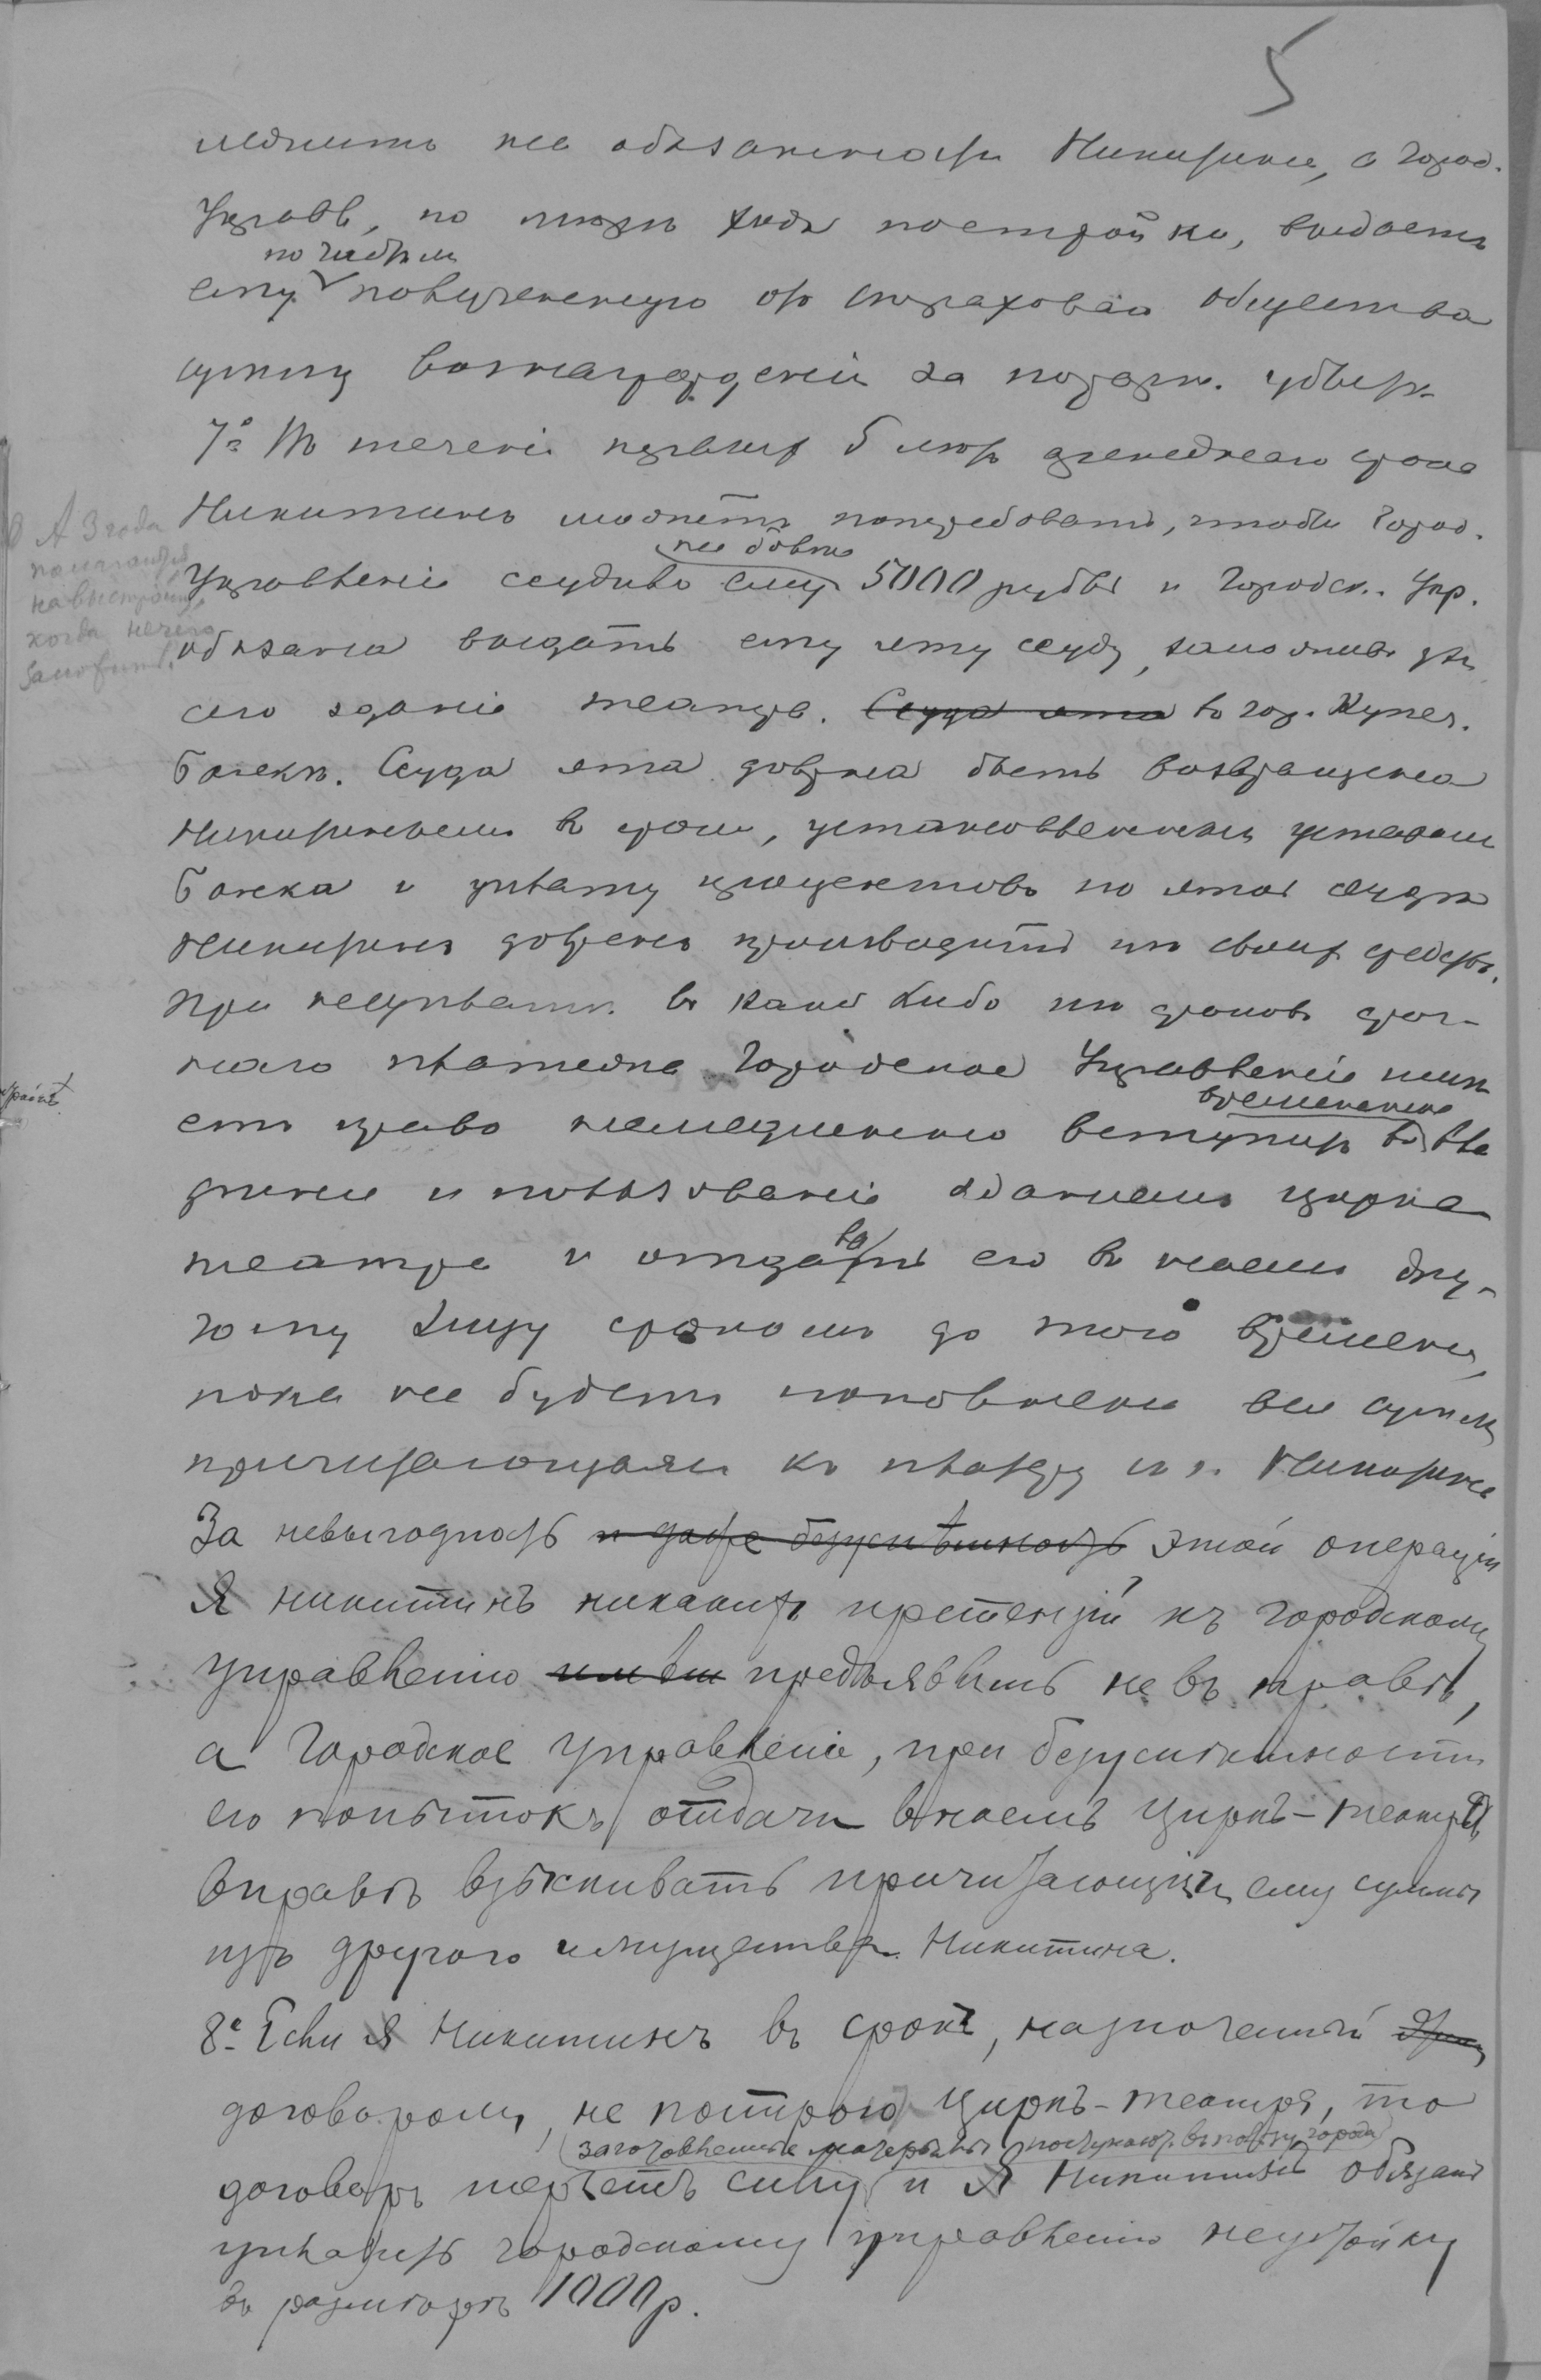 5
лежитъ на обязанности Никитина, а Город.
Управл., по мѣрѣ хода постройки, выдаетъ
по частямъ
ему полученную отъ страховаго общества
сумму вознагражденія за пожарн. убытки
7е Въ теченіе первыхъ 5 лѣтъ арендного срока
Никитинъ можетъ потребовать, чтобы Город.
не болѣе
Управленіе ссудило ему 5000 рублей и Городск. Упр.
обязано выдать ему эту ссуду, заложивъ для
сего зданіе театра. Ссуда эта въ гор. Купеч.
Банкъ. Ссуда эта должна быть возвращена
Никитинымъ въ сроки, установленные уставомъ
Банка и уплату процентовъ по этой ссудѣ
Никитинъ долженъ производить изъ своихъ средствъ.
При неуплатѣ въ какой либо изъ сроковъ сроч-
наго платежа Городское Управленіе имѣ
временно
етъ право немедленно вступить во вла
дѣніе и пользованіе зданіемъ цирка
театра и отдавать его въ наемъ дру-
ва
гому лицу срокомъ до того времени,
пока не будетъ пополнена вся сумма
причитающаяся къ платежу съ г. Никитина
За невыгодность и даже безуспѣшность этой операціи
Я Никитинъ никакихъ претензій къ городскому
управленію предъявить не въ правѣ,
а Городское Управленіе, при безуспѣшности
его попытокъ отдачи внаемъ Циркъ-театра,
вправѣ взыскивать причитающіяся ему суммы
изъ другого имущества Никитина.
8е Если Я Никитинъ въ срокъ, назначенный
договоромъ, не построю Циркъ-театра, то
(заготовленные матерьялы поступаютъ въ пользу города)
договоръ теряетъ силу и Я Никитинъ обязанъ
уплатить городскому управленію неустойку
въ размѣрѣ 1000 р.
А 3 года
полагается
на выстройку
когда нечего
заложить.